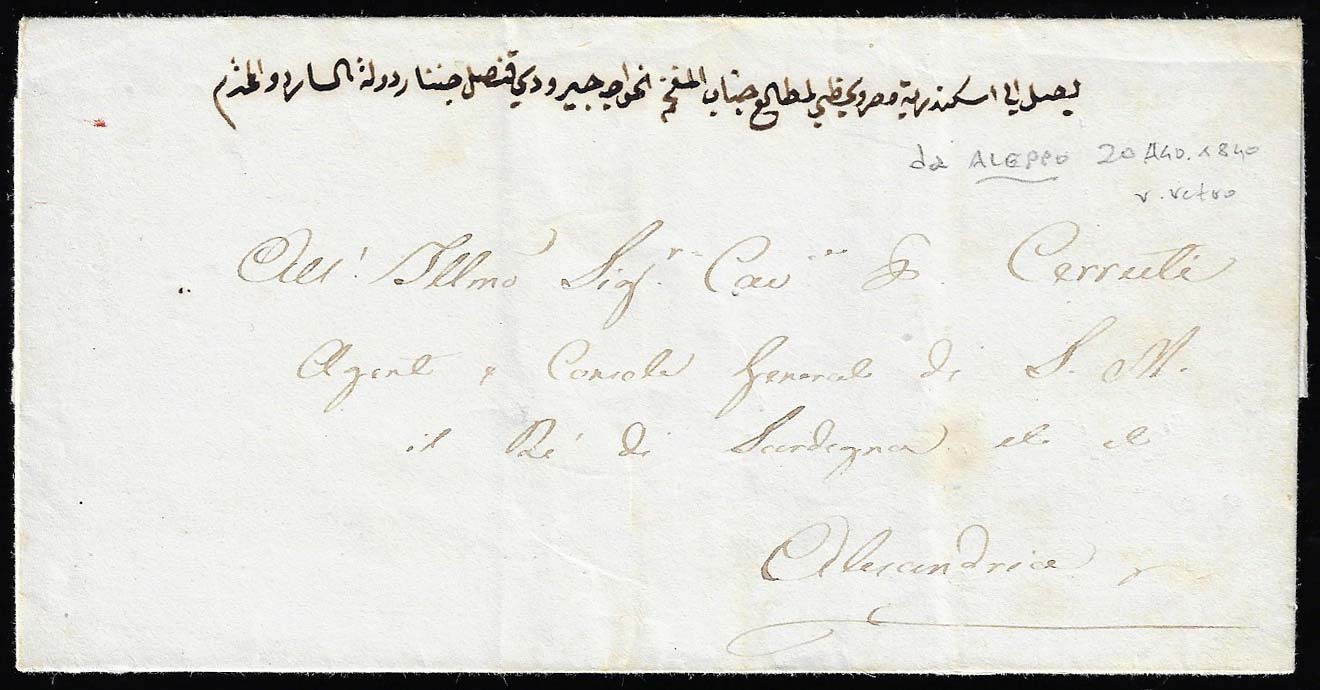 ليصل الى اسكندرية مصر ويحظي لمطالع جناب المفخم الخواجه جيرودي قنصل جننار دولة السارد والمحترم
da ALEPPO 20 AGO. 1840
v. retro
All' Illmo Sigr. Cav. Cerruti
Agente e Console Generale di S. M.
il Ré di Sardegna etc etc
Alessandria